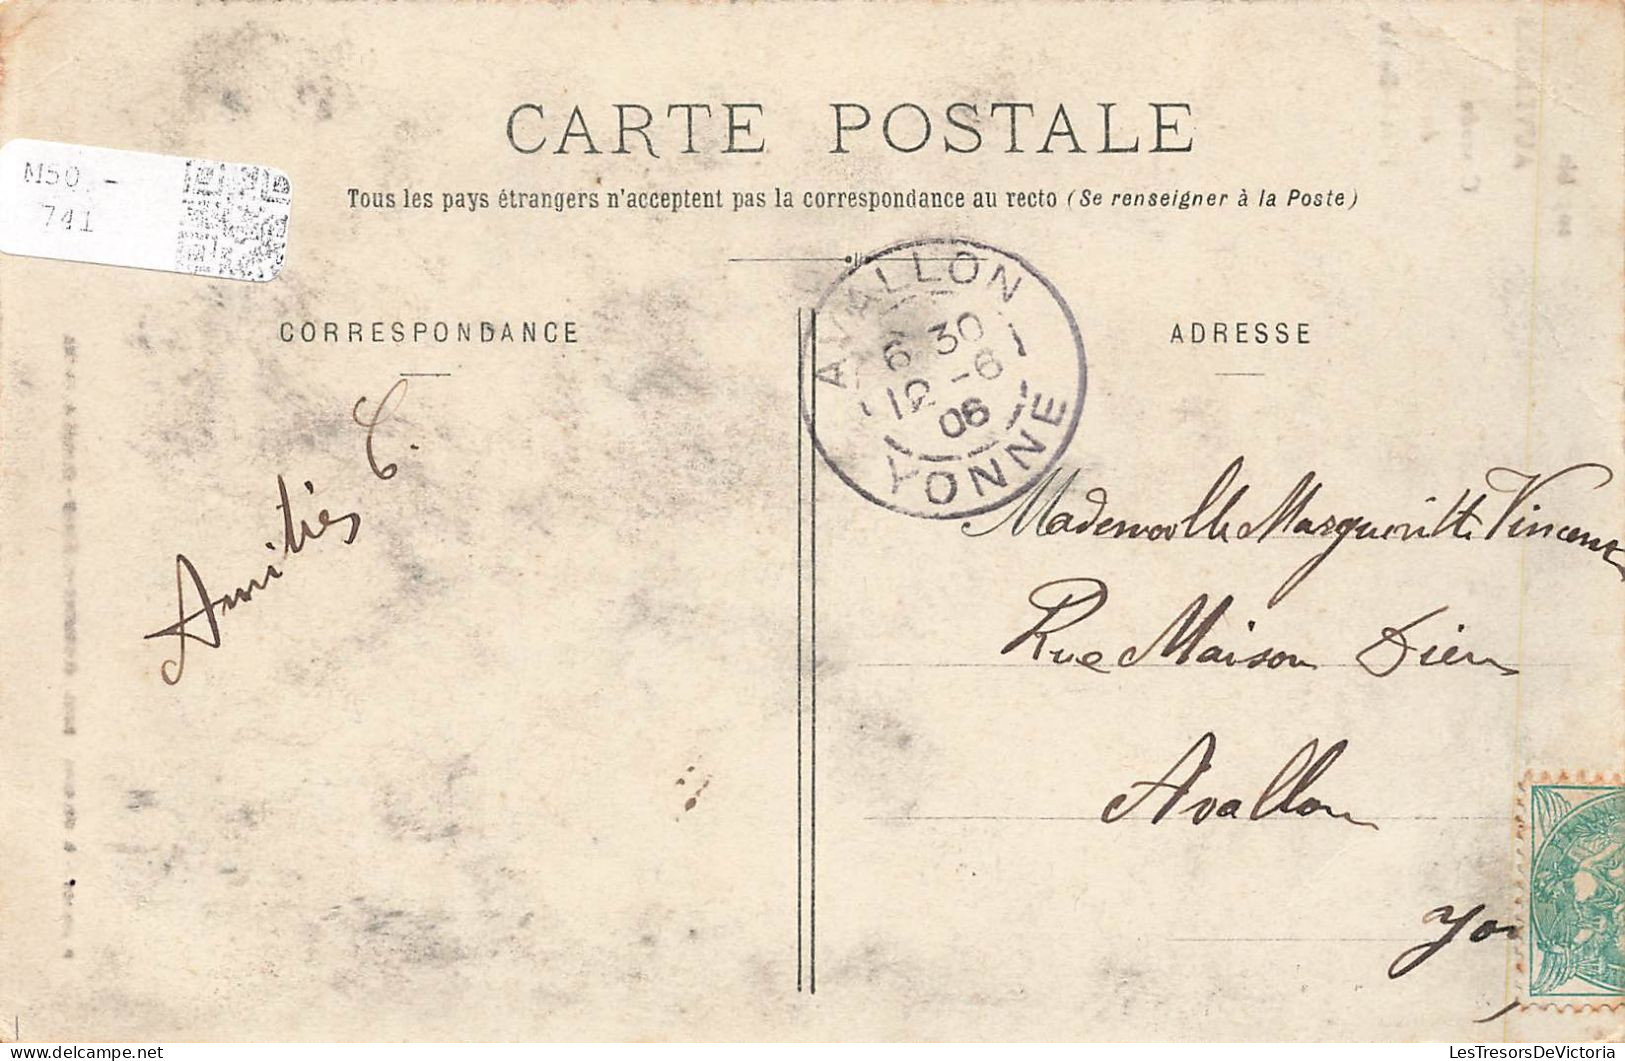 CARTE POSTALE
Tous les pays étrangers n'acceptent pas la correspondance au recto (Se renseigner à la Poste)
M50 -
741
CORRESPONDANCE
ADRESSE
AVALLON
6 30
12 -6
06
YONNE
Amitiés C.
Mademoiselle Margueritte Vincent
Rue Maison Dieu
Avallon
Yon
LesTresorsDeVictoria